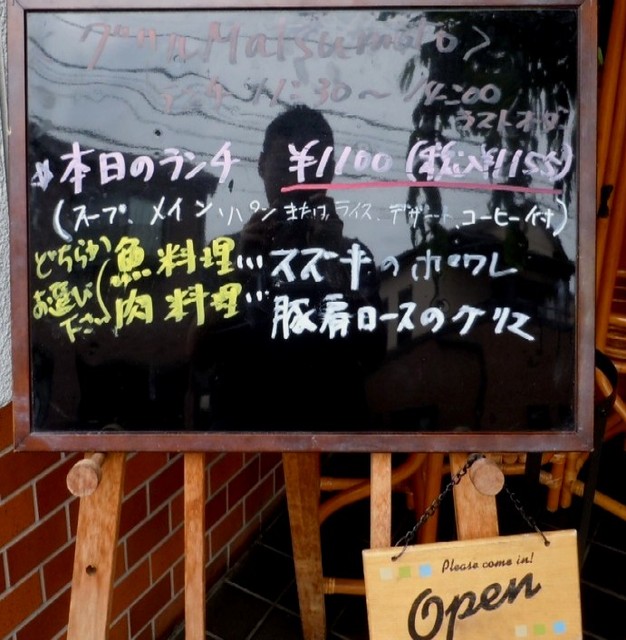 Matsumoto
ランチ 11:30〜14:00
ラストオーダー
本日のランチ ¥1100 (税込¥1155)
(スープ、メイン、パン または ライス、デザート、コーヒー付)
どちらかお選び下さい
魚料理…スズキのポワレ
肉料理…豚肩ロースのグリエ
Please come in!
Open